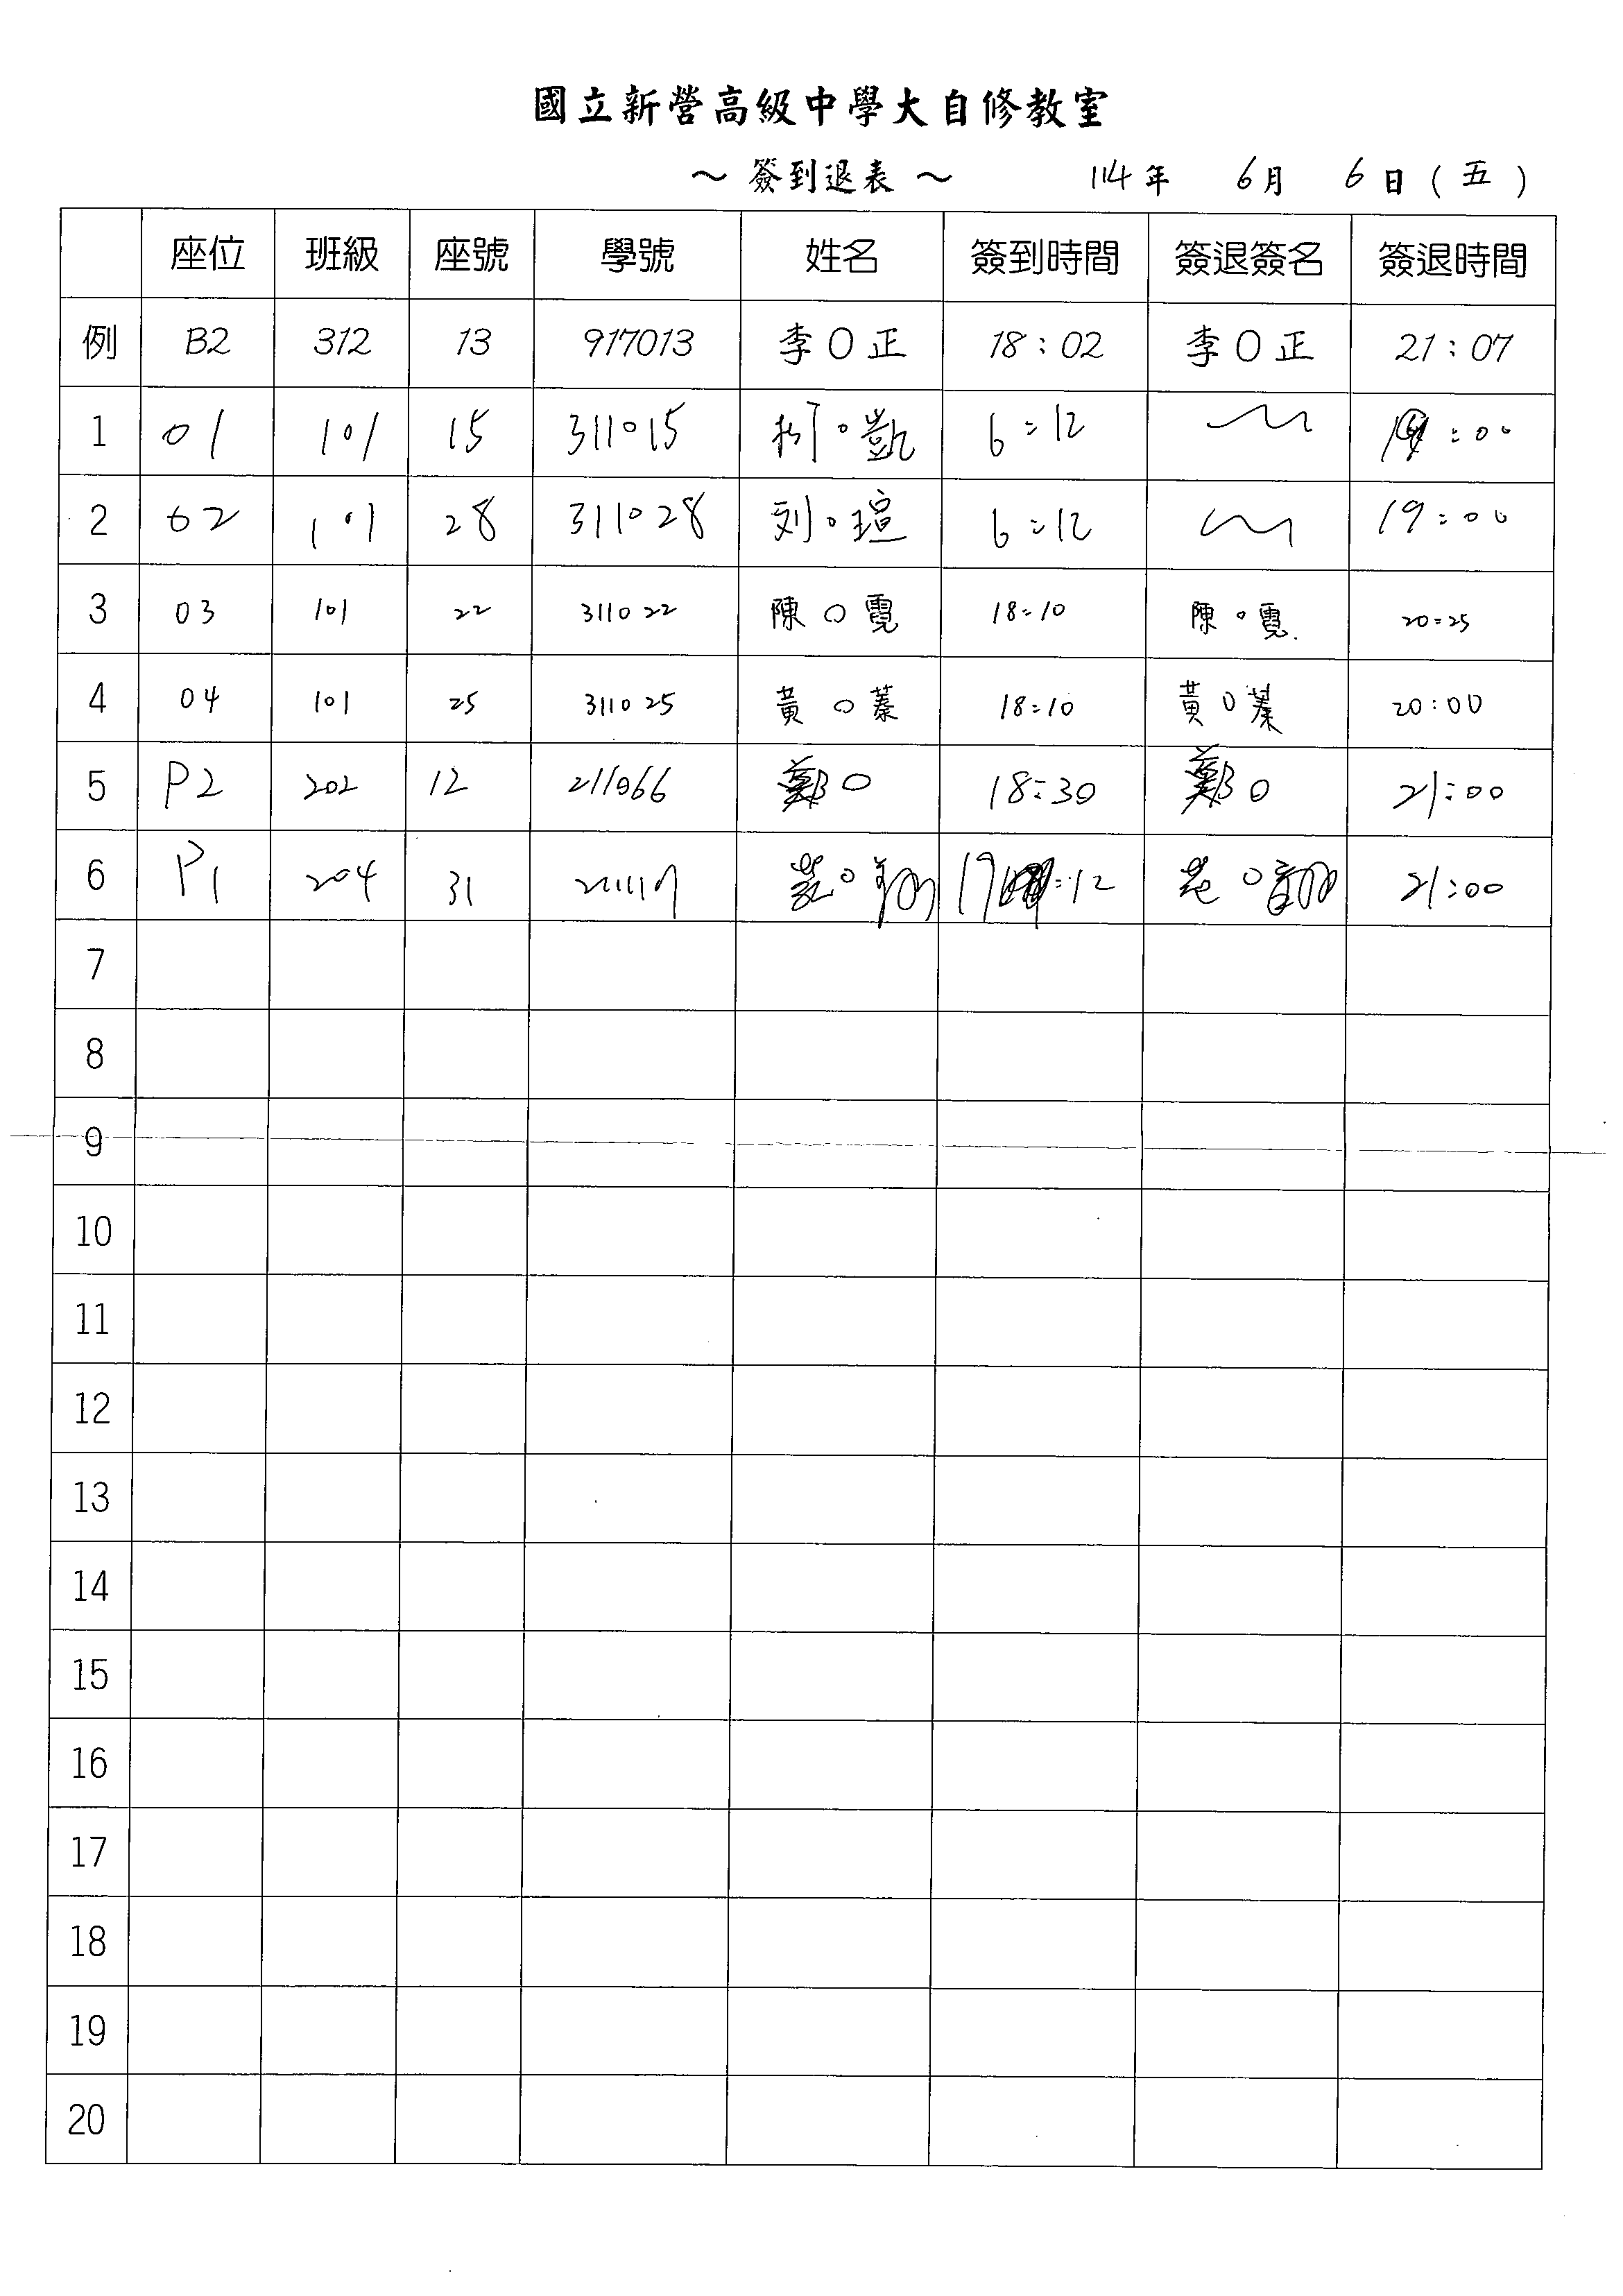 國立新營高級中學大自修教室
～ 簽到退表 ～ 114年 6月 6日(五)
座位 班級 座號 學號 姓名 簽到時間 簽退簽名 簽退時間
例 B2 312 13 917013 李O正 18:02 李O正 21:07
1 01 101 15 311015 柯○凱 6:12 :00
2 02 101 28 311028 刘○瑄 6:12 19:00
3 03 101 22 311022 陳○霓 18:10 陳○霓 20:25
4 04 101 25 311025 黃○蓁 18:10 黃○蓁 20:00
5 P2 202 12 211066 鄭○ 18:30 鄭○ 21:00
6 P1 204 31 :12 21:00
7
8
9
10
11
12
13
14
15
16
17
18
19
20